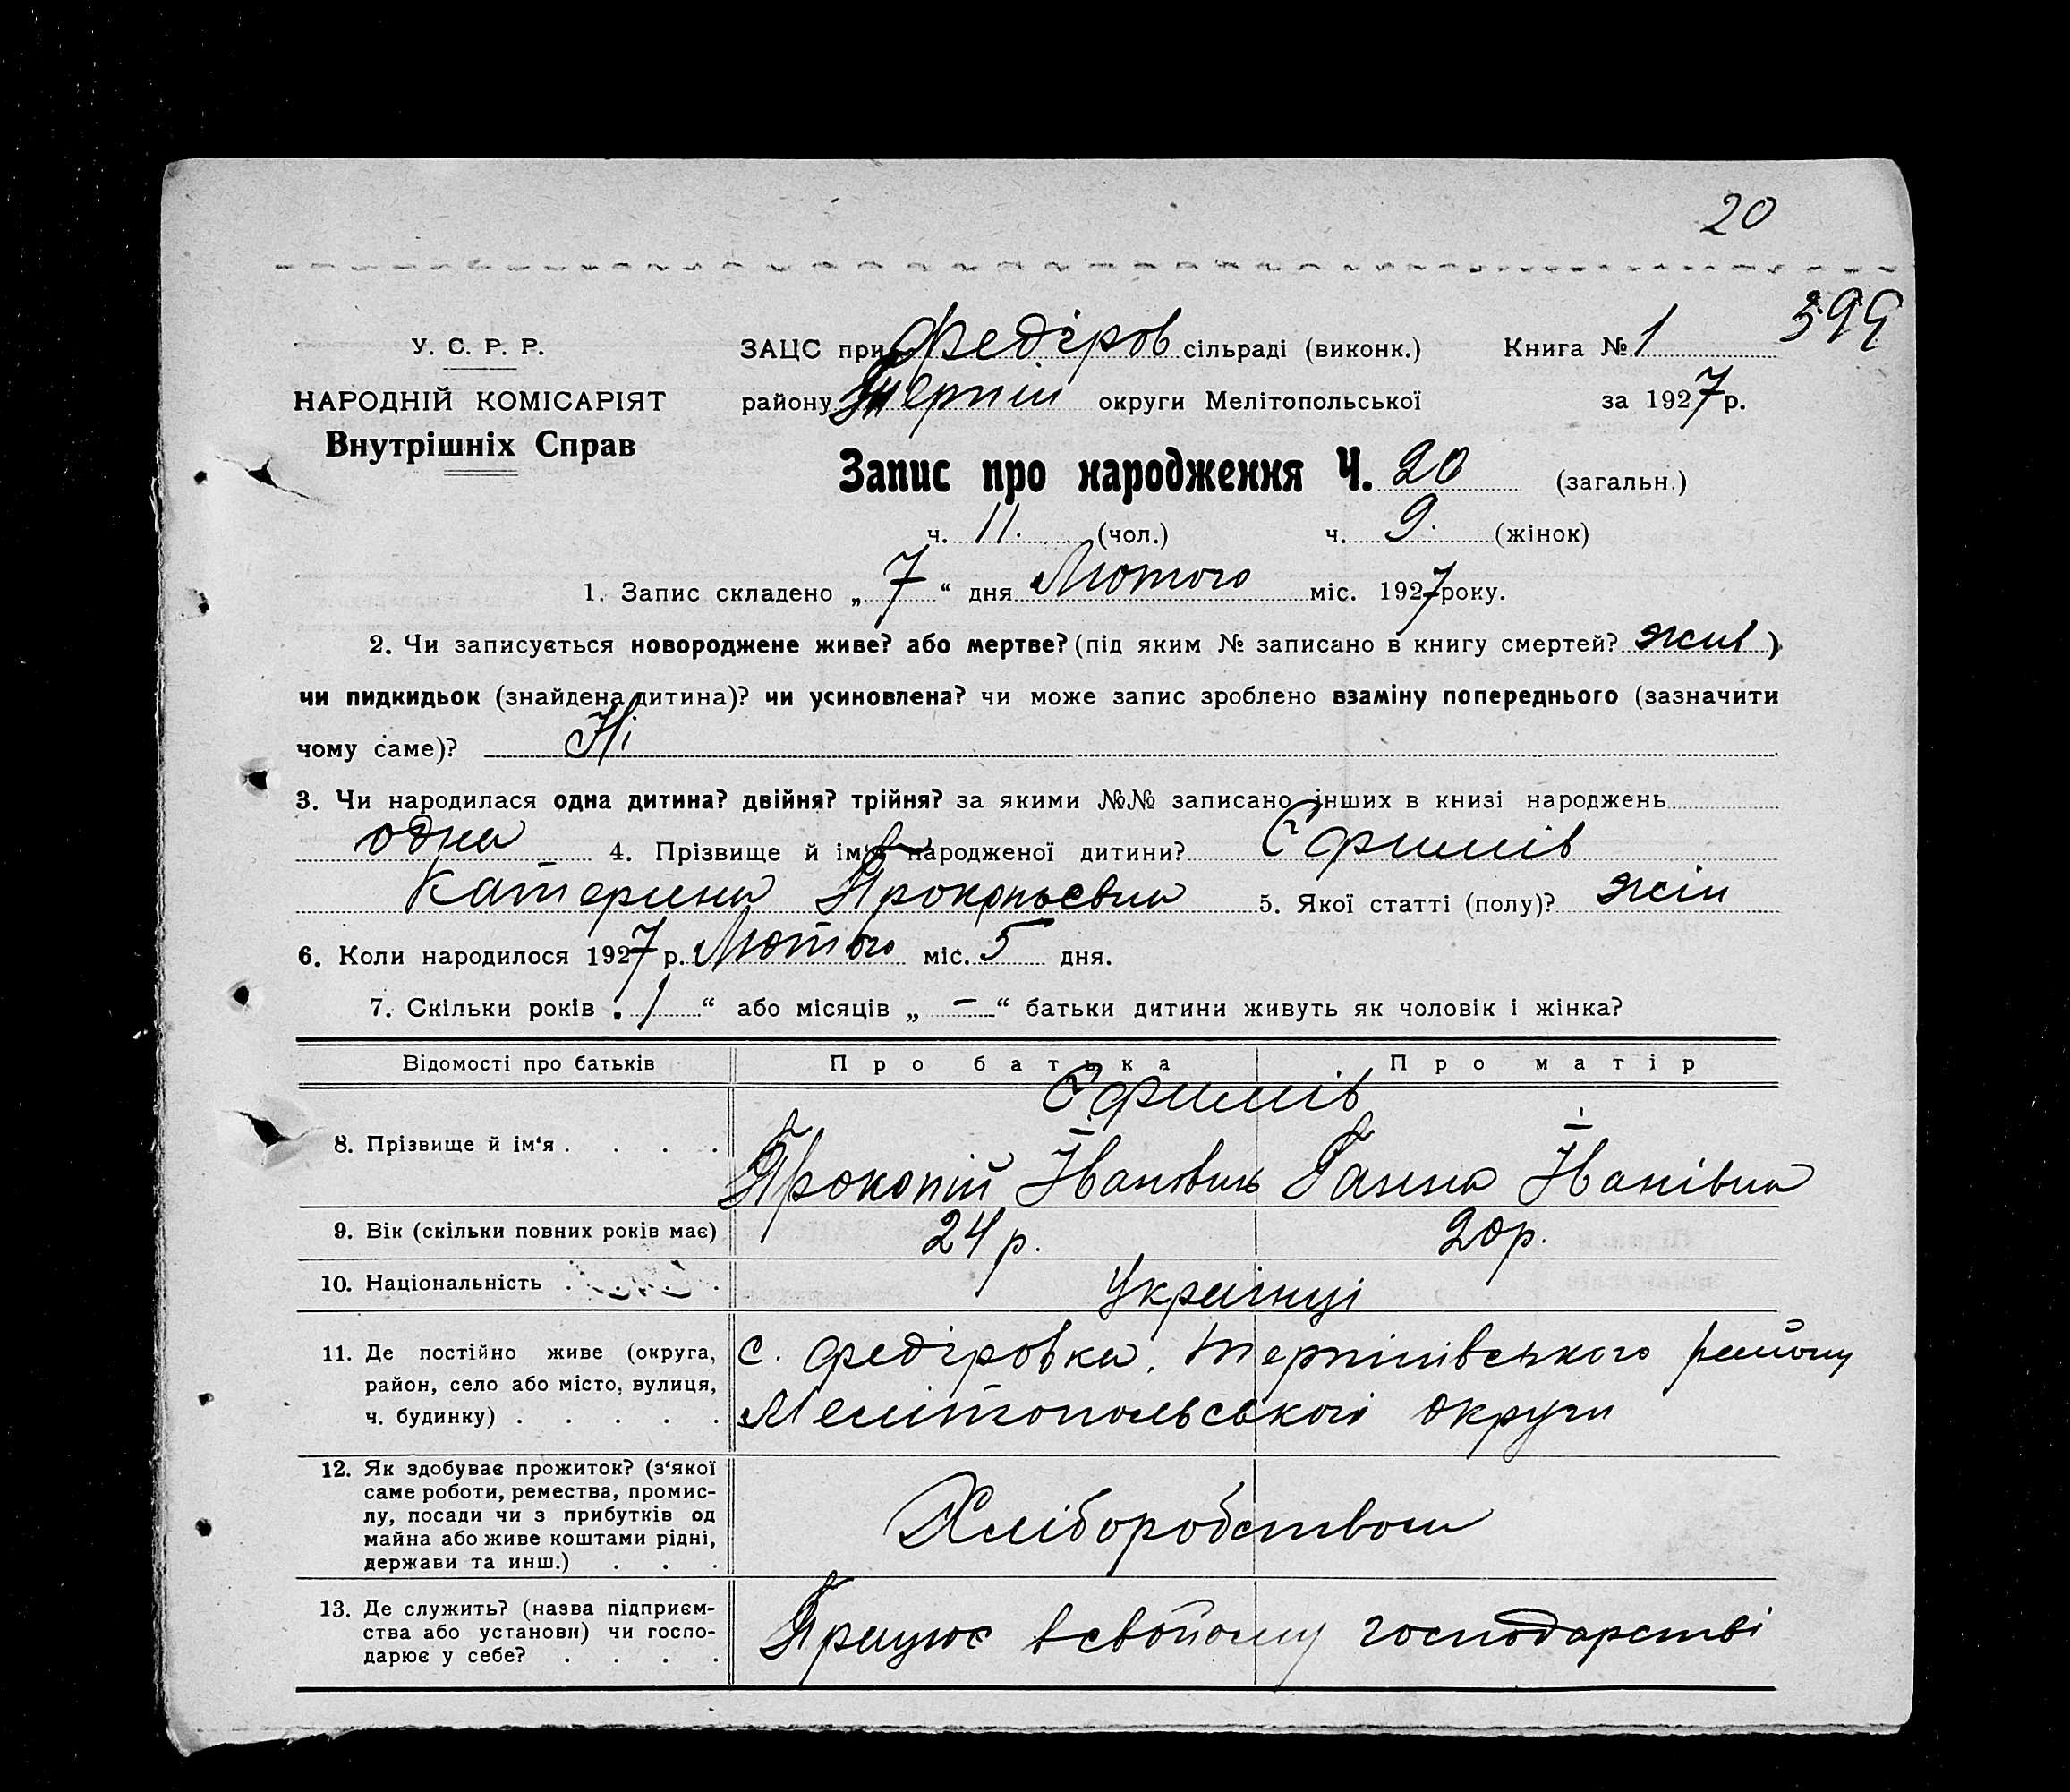 20
599
У. С. Р. Р.
НАРОДНІЙ КОМІСАРІЯТ
Внутрішніх Справ
ЗАЦС при Федіров сільраді (виконк.) Книга № 1
району Терпін округи Мелітопольської за 1927 р.
Запис про народження Ч. 20 (загальн.)
ч. 11. (чол.) ч. 9. (жінок)
1. Запис складено „ 7 “ дня Лютого міс. 1927 року.
2. Чи записується новороджене живе? або мертве? (під яким № записано в книгу смертей? жив )
чи пидкидьок (знайдена дитина)? чи усиновлена? чи може запис зроблено взаміну попереднього (зазначити
чому саме)? Ні
3. Чи народилася одна дитина? двійня? трійня? за якими №№ записано інших в книзі народжень
одна 4. Прізвище й ім‘я народженої дитини? Єфимів
Катерина Прокопьєвна 5. Якої статті (полу)? жін
6. Коли народилося 1927 р. Лютого міс. 5 дня.
7. Скільки років „ 1 “ або місяців „ — “ батьки дитини живуть як чоловік і жінка?
Відомості про батьків Про батька Про матір
Єфимів
8. Прізвище й ім‘я . . . . Прокопій Іванович Ганна Іванівна
9. Вік (скільки повних років має) 24 р. 20 р.
10. Національність . . . . Українці
11. Де постійно живе (округа, с. Федіровка, Терпінівського району
район, село або місто, вулиця,
ч. будинку) . . . . . Мелітопольської округи
12. Як здобуває прожиток? (з‘якої
саме роботи, ремества, промис-
лу, посади чи з прибутків од Хліборобством
майна або живе коштами рідні,
держави та инш.) . . .
13. Де служить? (назва підприєм-
ства або установи) чи госпо- Працює в свойому господарстві
дарює у себе? . . . .